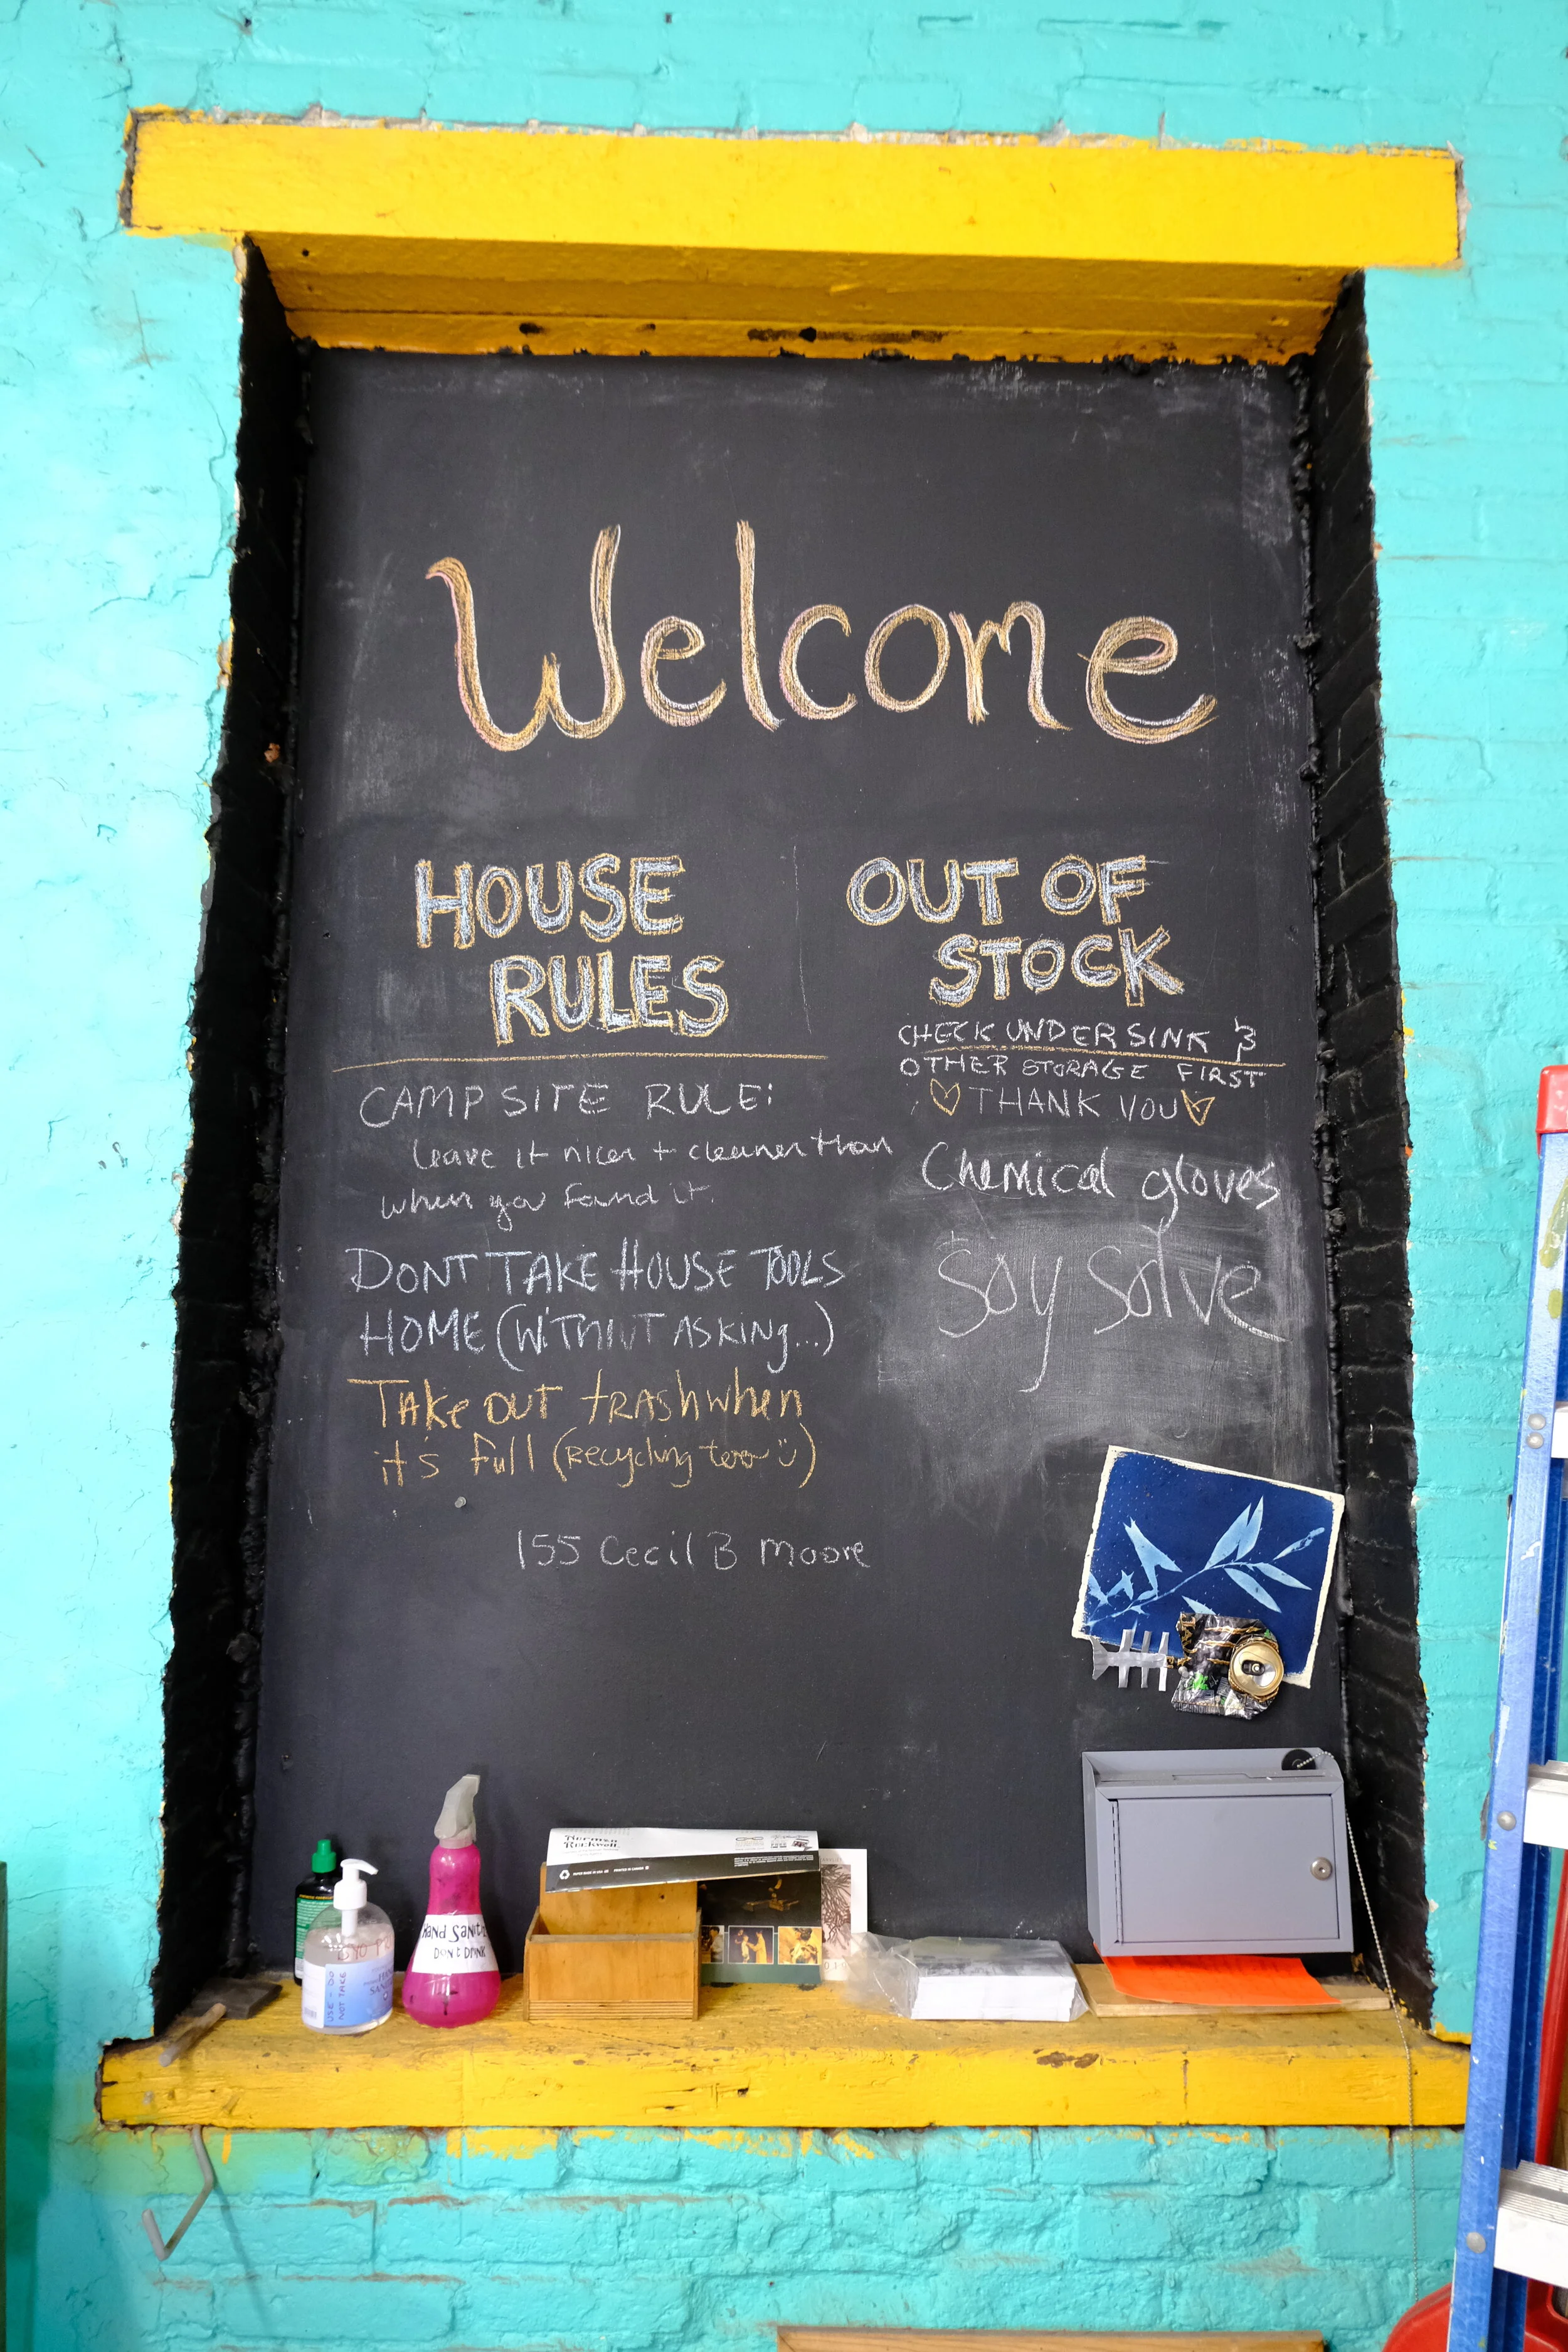 Welcome
HOUSE
RULES
CAMPSITE RULE:
leave it nicer + cleaner than
when you found it.
DONT TAKE HOUSE TOOLS
HOME (WITHOUT ASKING...)
TAKE OUT TRASH when
it's full (Recycling too)
155 Cecil B Moore
OUT OF
STOCK
CHECK UNDER SINK &
OTHER STORAGE FIRST
THANK YOU
Chemical gloves
Soy Solve
USE - DO
NOT TAKE
HAND SANITI
DON't DRINK
Norman
Rockwell